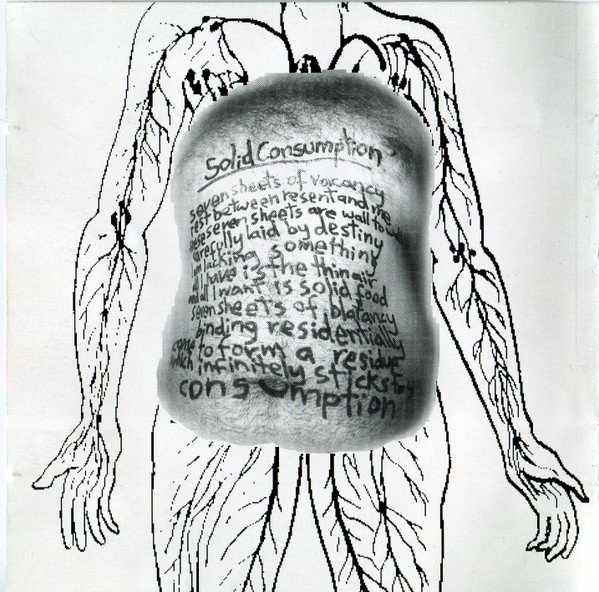 Solid Consumption
seven sheets of vacancy
rest between resent and me
these seven sheets are wall to
carefully laid by destiny
I am lacking something
all I have is the thin air
and all I want is solid food
seven sheets of blatancy
binding residentially
come to form a residue
which infinitely sticks to my
consumption